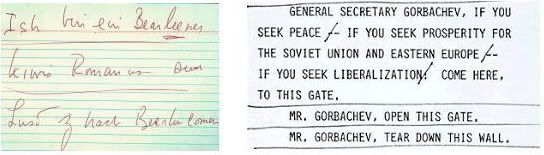 Ish bin ein Bearleener
kiwis Romanus sum
Lusd z nach Bearlin comen
GENERAL SECRETARY GORBACHEV, IF YOU
SEEK PEACE -- IF YOU SEEK PROSPERITY FOR
THE SOVIET UNION AND EASTERN EUROPE --
IF YOU SEEK LIBERALIZATION: COME HERE,
TO THIS GATE.
MR. GORBACHEV, OPEN THIS GATE.
MR. GORBACHEV, TEAR DOWN THIS WALL.